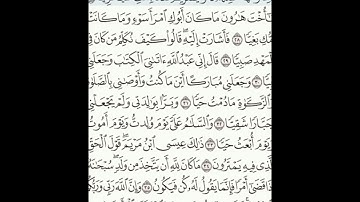 يَـٰٓأُخْتَ هَـٰرُونَ مَا كَانَ أَبُوكِ ٱمْرَأَ سَوْءٍ وَمَا كَانَتْ
أُمُّكِ بَغِيًّا ٢٨ فَأَشَارَتْ إِلَيْهِ قَالُوا۟ كَيْفَ نُكَلِّمُ مَن كَانَ فِى
ٱلْمَهْدِ صَبِيًّا ٢٩ قَالَ إِنِّى عَبْدُ ٱللَّهِ ءَاتَىٰنِىَ ٱلْكِتَـٰبَ وَجَعَلَنِى
نَبِيًّا ٣٠ وَجَعَلَنِى مُبَارَكًا أَيْنَ مَا كُنتُ وَأَوْصَـٰنِى بِٱلصَّلَوٰةِ
وَٱلزَّكَوٰةِ مَا دُمْتُ حَيًّا ٣١ وَبَرًّۢا بِوَٰلِدَتِى وَلَمْ يَجْعَلْنِى
جَبَّارًا شَقِيًّا ٣٢ وَٱلسَّلَـٰمُ عَلَىَّ يَوْمَ وُلِدتُّ وَيَوْمَ أَمُوتُ
وَيَوْمَ أُبْعَثُ حَيًّا ٣٣ ذَٰلِكَ عِيسَى ٱبْنُ مَرْيَمَ قَوْلَ ٱلْحَقِّ
ٱلَّذِى فِيهِ يَمْتَرُونَ ٣٤ مَا كَانَ لِلَّهِ أَن يَتَّخِذَ مِن وَلَدٍ سُبْحَـٰنَهُۥٓ
إِذَا قَضَىٰٓ أَمْرًا فَإِنَّمَا يَقُولُ لَهُۥ كُن فَيَكُونُ ٣٥ وَإِنَّ ٱللَّهَ رَبِّى وَرَبُّكُمْ